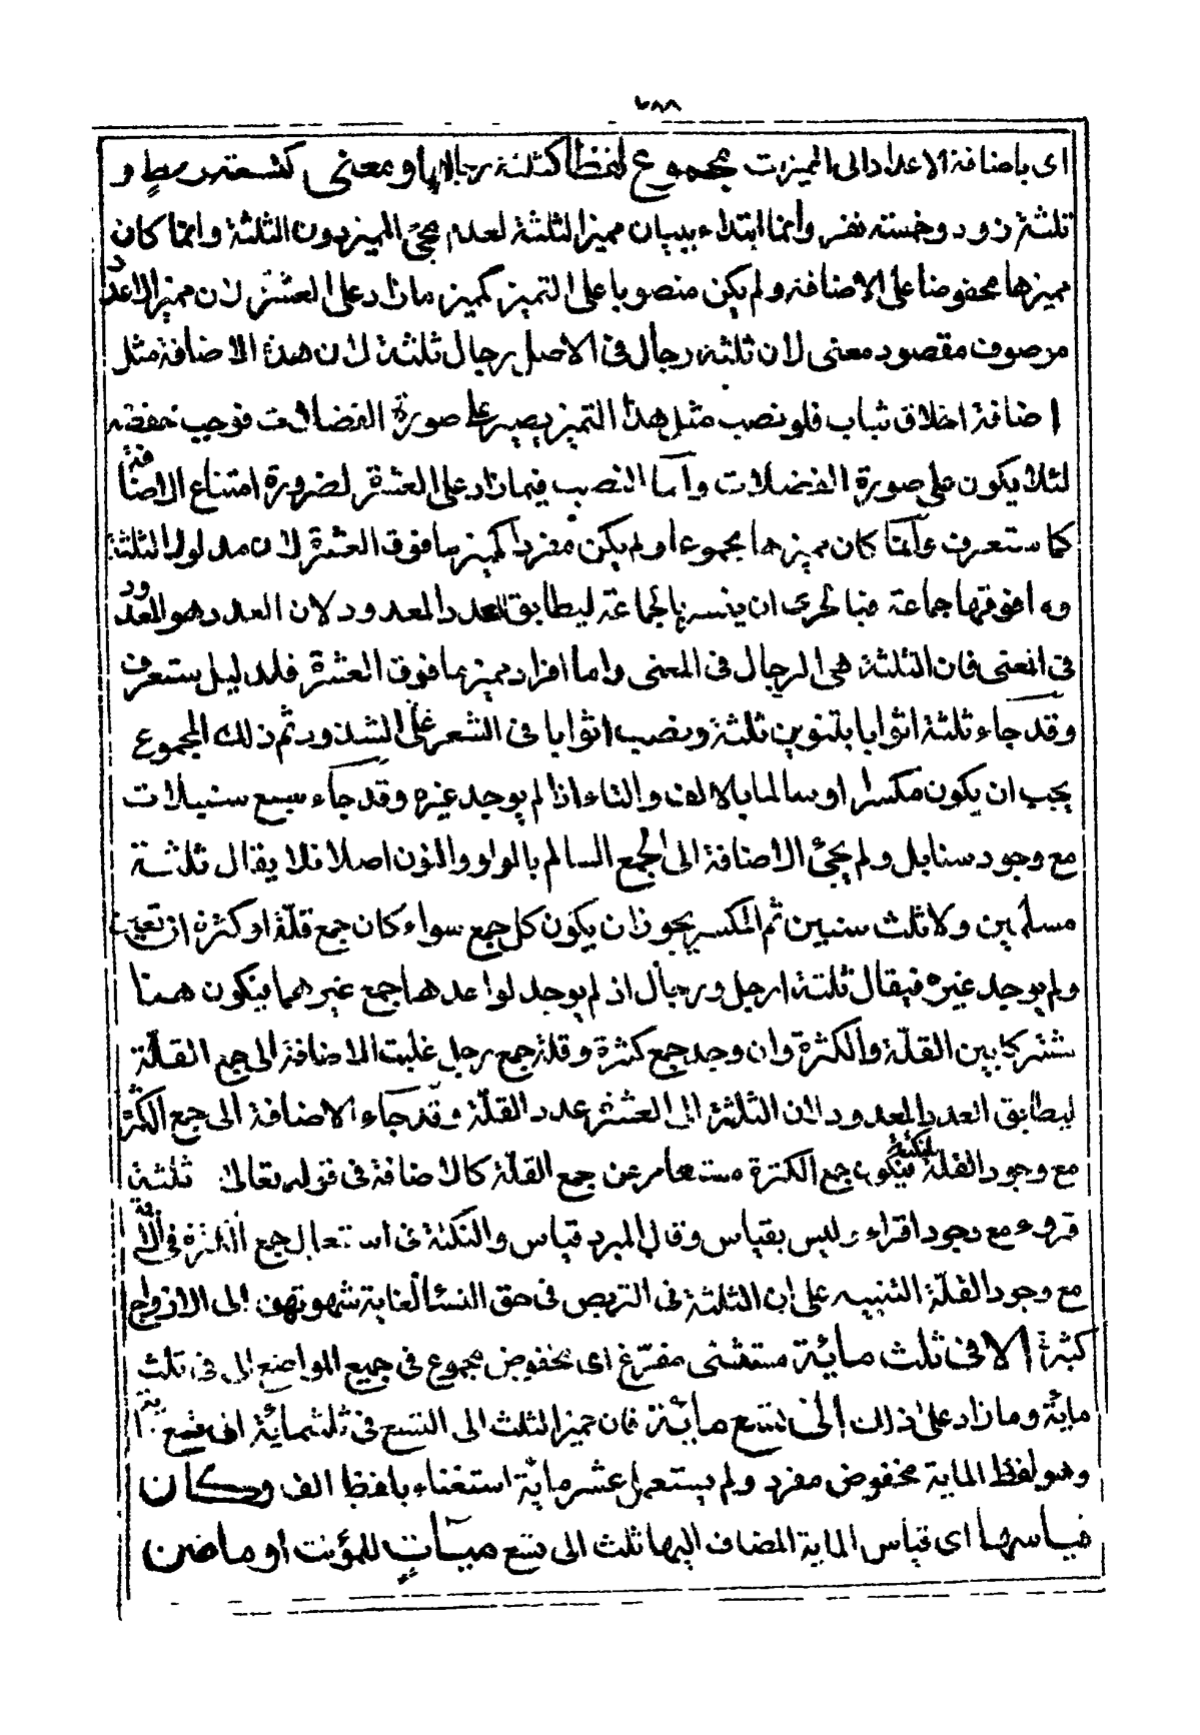 ٢٨٨
اى باضافة الاعداد الى المميزات مجموع لفظا كثلثة رجال او معنى كتسعة رهط و
ثلثة ذود وخمسة نفر وانما ابتداء ببيان مميز الثلثة لعدم مجئ المميز بدون الثلثة وانما كان
مميزها مخفوضا على الاضافة ولم يكن منصوبا على التميز كميز ما زاد على العشرة لان مميز الاعداد
موصوف مقصود معنى لان ثلثة رجال فى الاصل رجال ثلثة لان هذه الاضافة مثل
اضافة اخلاق ثياب فلو نصب مثل هذا التميز يصير على صورة الفضلات فوجب خفضه
لئلا يكون على صورة الفضلات واما النصب فيما زاد على العشرة لضرورة امتناع الاضافة
كما ستعرف وانما كان مميزها مجموعا ولم يكن مفردا كميز ما فوق العشرة لان مدلول الثلثة
وما فوقها جماعة فبالحرى ان يفسر بالجماعة ليطابق العدد المعدود لان العدد هو المعدود
فى المعنى فان الثلثة هى الرجال فى المعنى واما افراد مميز ما فوق العشرة فلدليل ستعرف
وقد جاء ثلثة اثوابا بتنوين ثلثة ونصب اثوابا فى الشعر على الشذوذ ثم ذلك المجموع
يجب ان يكون مكسرا او سالما بالالف والتاء اذا لم يوجد غيره وقد جاء سبع سنبلات
مع وجود سنابل ولم يجئ الاضافة الى الجمع السالم بالواو والنون اصلا فلا يقال ثلثة
مسلمين ولا ثلث سنين ثم المكسر يجوز ان يكون كل جمع سواء كان جمع قلة او كثرة ان تعين
ولم يوجد غيره فيقال ثلثة ارجل ورجال اذ لم يوجد لواحدهما جمع غيرهما فيكون همنا
مشتركا بين القلة والكثرة وان وجد جمع كثرة وقلة جمع رجل غلبت الاضافة الى جمع القلة
ليطابق العدد المعدود لان الثلثة الى العشرة عدد القلة وقد جاء الاضافة الى جمع الكثرة
مع وجود القلة لنكتة فيكون جمع الكثرة مستعار عن جمع القلة كالاضافة فى قوله تعالى ثلثة
قروء مع وجود اقراء وليس بقياس وقال المبرد قياس والنكتة فى استعمال جمع الكثرة فى الآية
مع وجود القلة التنبيه على ان الثلثة فى التربص فى حق النساء لغاية شهوتهن الى الازواج
كثيرة الا فى ثلث مائة مستثنى مفرغ اى مخفوض مجموع فى جميع المواضع الا فى ثلث
مائة وما زاد على ذلك الى تسع مائة فان مميز الثلث الى التسع فى ثلثمائة الى تسع مائة
وهو لفظ المائة مخفوض مفرد ولم يستعمل عشر مائة استغناء بلفظ الف وكان
قياسها اى قياس المائة المضاف اليها ثلث الى تسع ميأت للمؤنث او ماضن